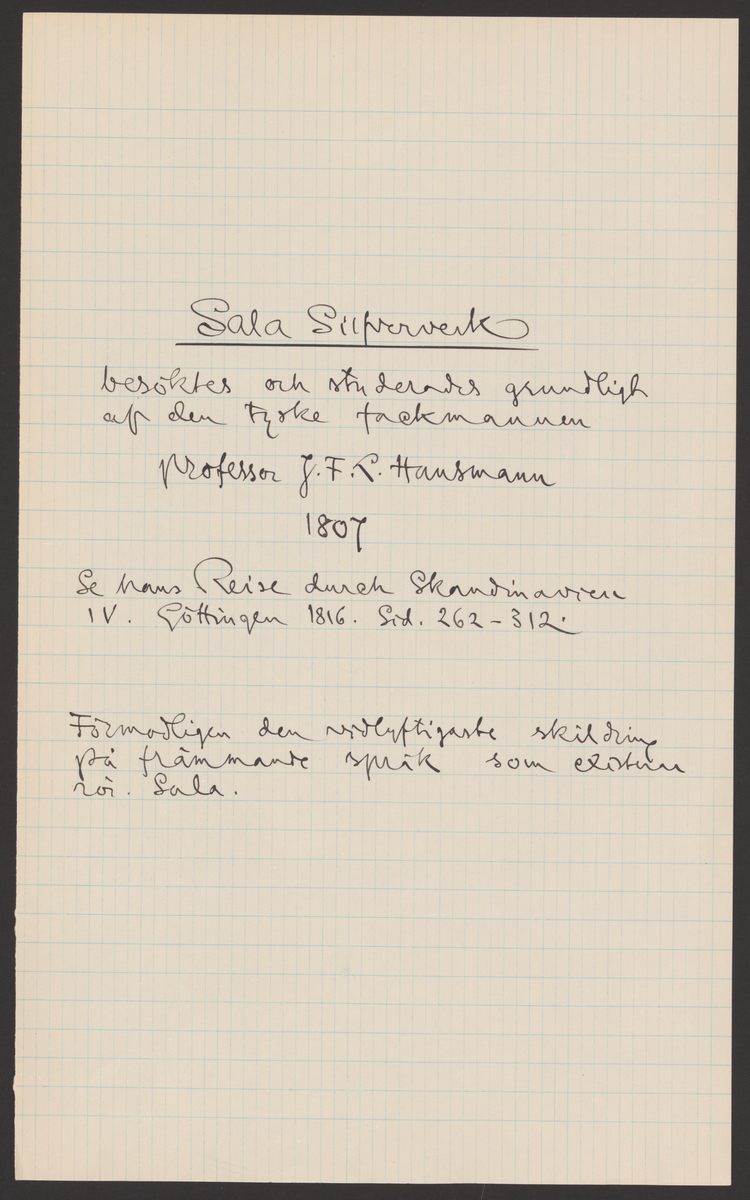 Sala Silfververk
besöktes och studerades grundligt
af den tyske fackmannen
professor J. F. L. Hausmann
1807
Se hans Reise durch Skandinavien
IV. Göttingen 1816. Sid. 262-312.
Förmodligen den vidlyftigaste skildring
på främmande språk som existerar
rör. Sala.